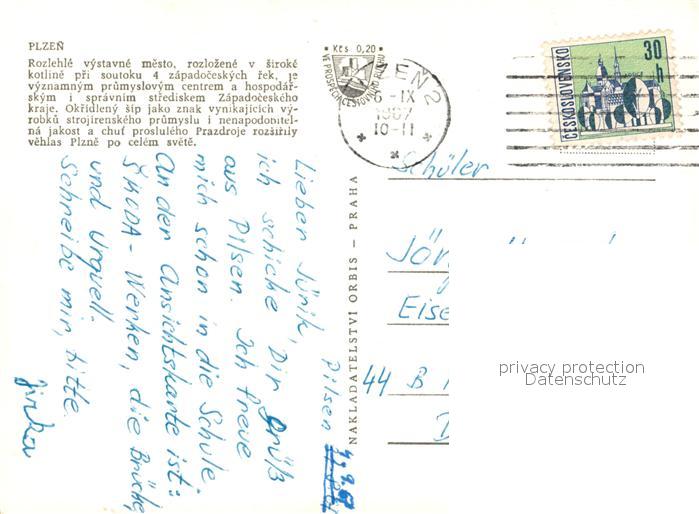 PLZEŇ
Rozlehlé výstavné město, rozložené v široké
kotlině při soutoku 4 západočeských řek, je
významným průmyslovým centrem a hospodář-
ským i správním střediskem Západočeského
kraje. Okřídlený šíp jako znak vynikajících vý-
robků strojírenského průmyslu i nenapodobitel-
ná jakost a chuť proslulého Prazdroje rozšířily
věhlas Plzně po celém světě.
Kčs 0,20
VE PROSPĚCH CESTOVNÍHO RUCHU
PLZEŇ 2
6-IX
1967
10-11
ČESKOSLOVENSKO
30
h
Pilsen
Lieber Jörik,
ich schicke Dir Grüß
aus Pilsen. Ich freue
mich schon in die Schule.
An der Ansichtskarte ist:
ŠKODA-Werken, die Brücke,
und Urquell.
Schreibe mir, bitte.
NAKLADATELSTVÍ ORBIS — PRAHA
Schüler
Jör
Eise
44 B
privacy protection
Datenschutz